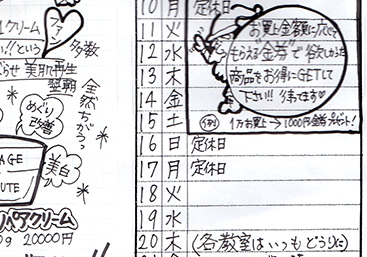 クリーム
ファー
い!!という
多数
らせ 美肌で再生
堅朝
全然ちがう
めぐり
改善
美白
AGE
UTE
ペアクリーム
0g 20000円
10 月 定休日
11 火
12 水
13 木
14 金
15 土
16 日 定休日
17 月 定休日
18 火
19 水
20 木 (各教室はいつもどうりに)
お買上金額に応じて
もらえる金券で欲しかった
商品をお得にGETして
下さい!! 待ってます♡
例 1万お買上→1000円金券プレゼント!